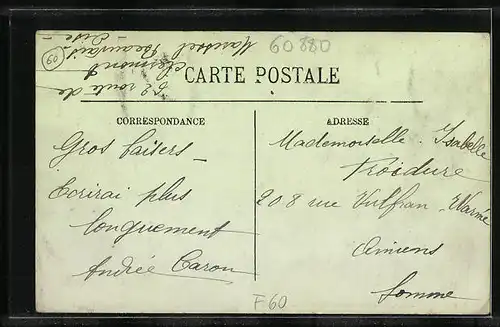 60880
60
52 route de
Clermont
Beauvais -
Oise -
CARTE POSTALE
CORRESPONDANCE
ADRESSE
Gros baisers -
Ecrirai plus
longuement
Andrée Caron
Mademoiselle. Isabelle
Froidure
208 rue Vulfran - Warmé
Amiens
Somme
F60